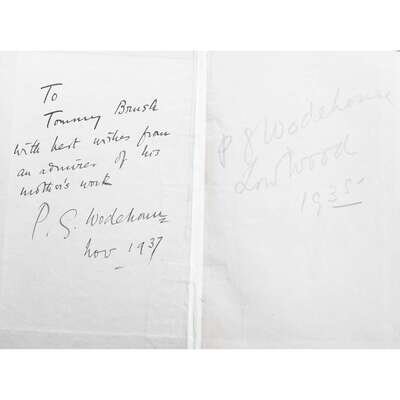 To
Tommy Brush
with best wishes from
an admirer of his
mother's work
P. G. Wodehouse
Nov 1937
P G Wodehouse
Lowwood
1935